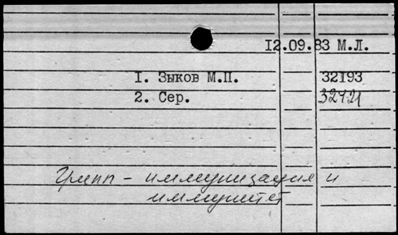 12.09.83 М.Л.
1. Зыков М.П. 32193
2. Сер. 32421
Грипп - иммунизация и
иммунитет